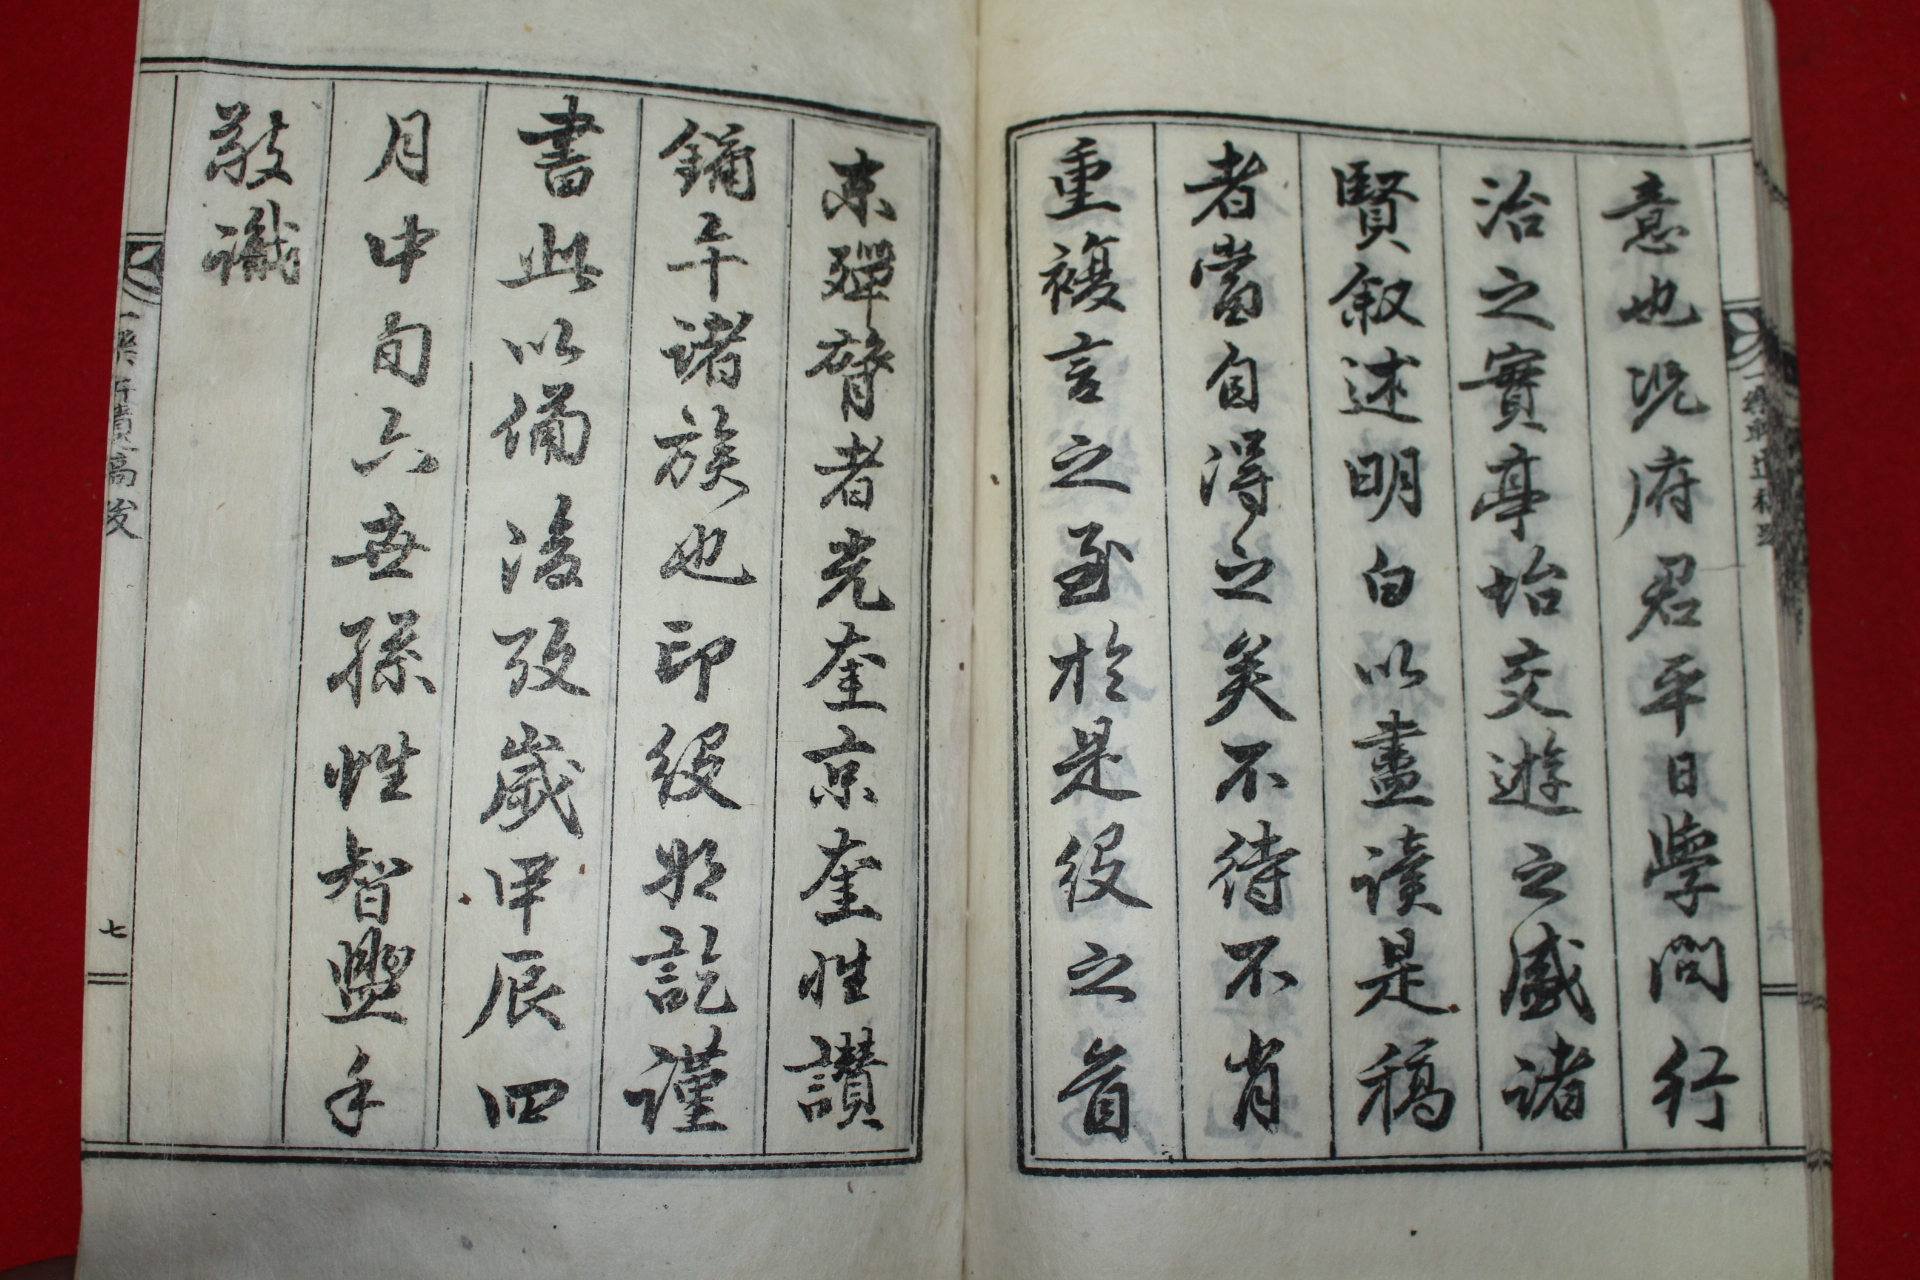 意也況府君平日學問行
治之實亭坮交遊之盛諸
賢叙述明白以盡讀是稿
者當自得之矣不待不肖
重複言之至於是役之首
末殫膂者光奎京奎性讚
鏞午諸族也印役將訖謹
書此以備後攷歲甲辰四
月中旬六世孫性智盥手
敬識
七